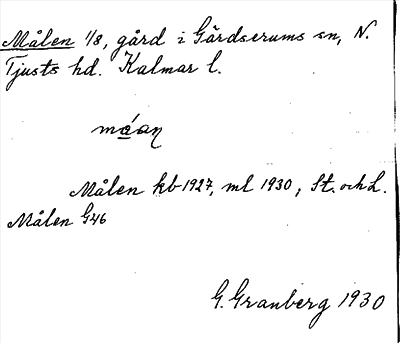 Målen 1/8, gård i Gärdserums sn, N.
Tjusts hd. Kalmar l.
Målen kb 1927, ml 1930, St. och L.
Målen G46
G. Granberg 1930